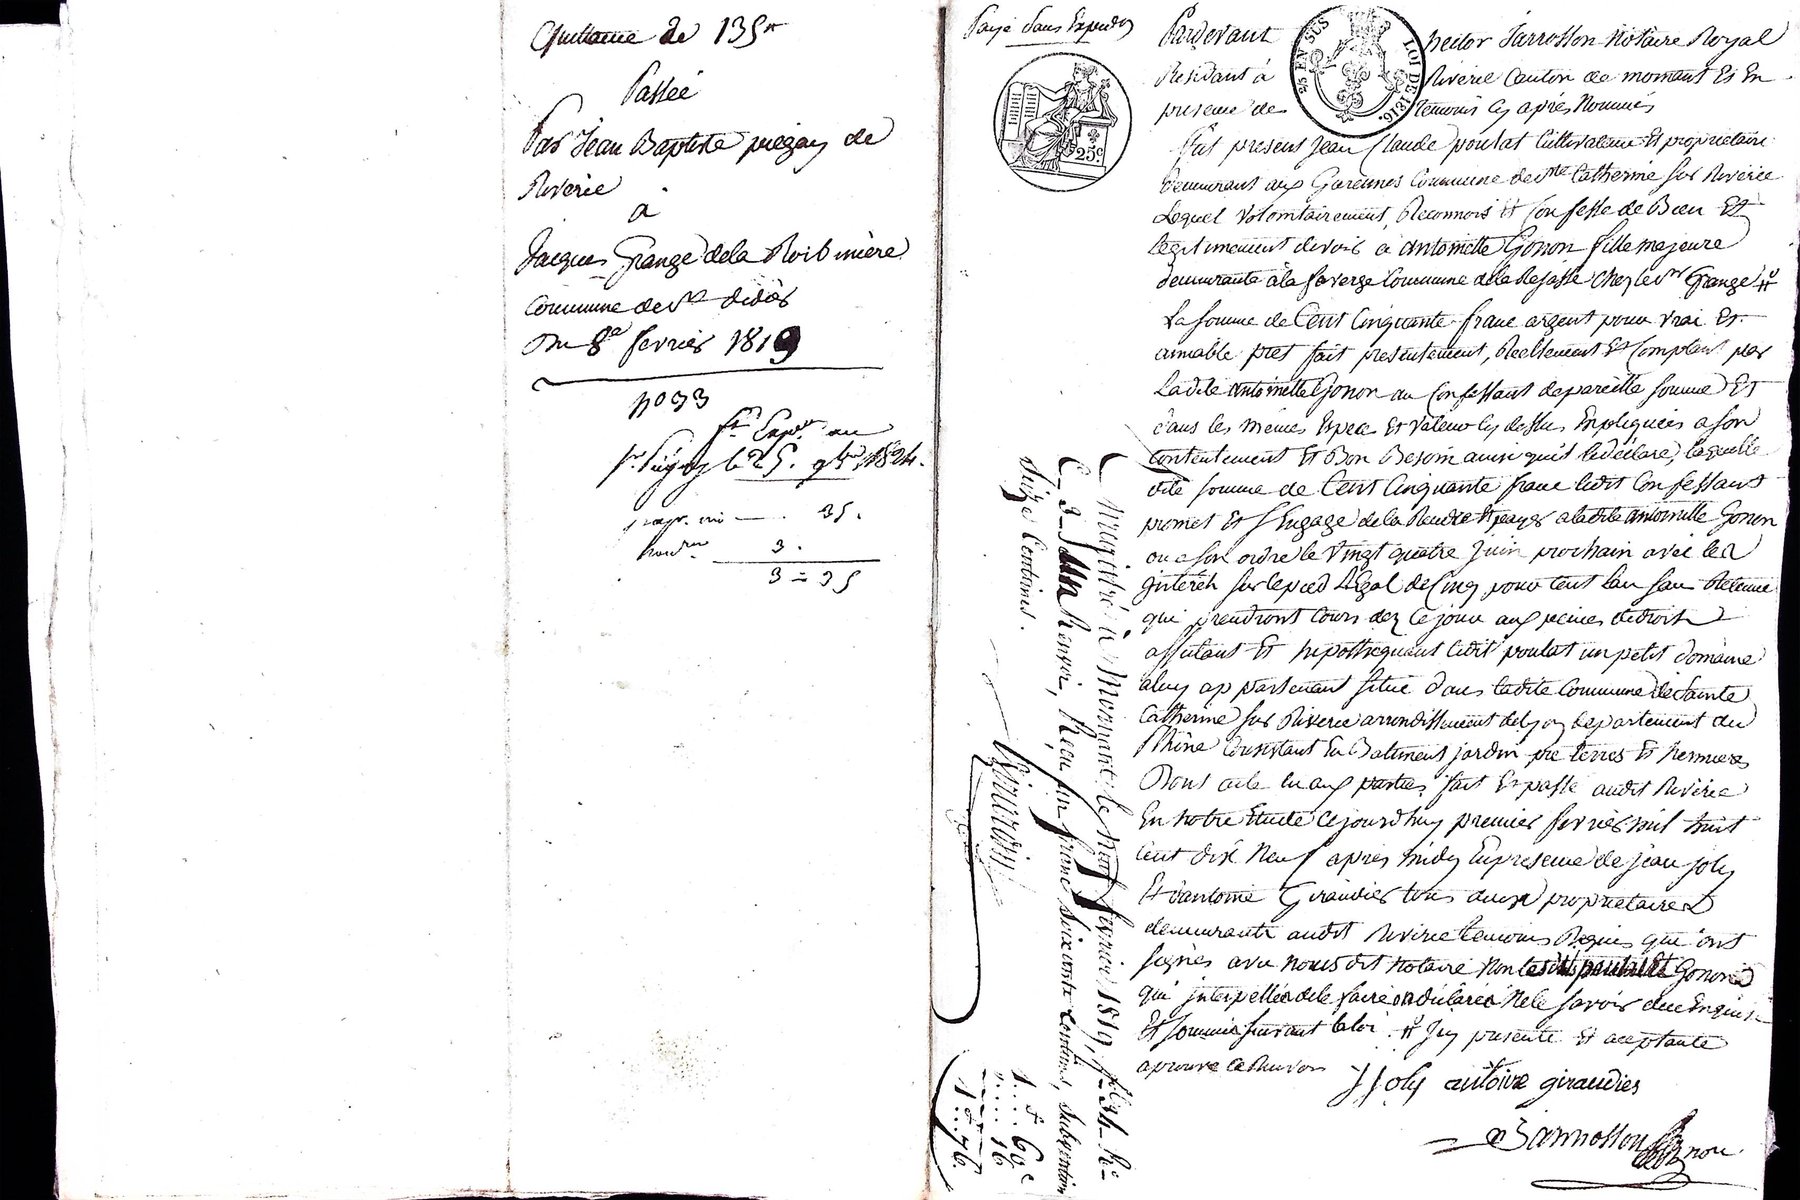 Quittance de 135#
Passée
Par Jean Baptiste piegay de
Riverie
a
Jacques Grange dela Roibinière
Commune de St didier
Du 8e fevrier 1819
no 33
le 25. 9bre 1824.
35.
3.
3 = 35
Payé Sans Expedon
25 EN SUS
LOI DE 1816.
25c
Pardevant hector Jarrosson Notaire Royal
Residant à Riverie Canton de mornant Et En
presence de temoins cy après Nommés
Fut present Jean Claude poulat Cultivateur Et proprietaire
demeurant aux Garennes Commune de Ste Catherine sur Riverie
Lequel volontairement Reconnois Et Confesse de Bien Et
legitimement devoir à antoinette Gonon fille majeure
demeurante à la faverge Commune dela Rajasse Chez le Sr Grange #
La somme de Cent Cinquante franc argent pour vrai Et
aimable pret fait presentement, Reellement Et Comptant par
Ladite antoinette Gonon au Confessant depareille somme Et
dans les mêmes Espece Et valeur cy dessus Expliquées a son
Contentement Et Bon Besoin ainsi quil le déclare, laquelle
dite somme de Cent Cinquante franc ledit Confessant
promet Et s'Engage de la Rendre Et payer a ladite antoinette Gonon
ou a son ordre le vingt quatre Juin prochain avec les
jnterets sur le pied Légal de Cinq pour cent l'an sans Retenue
qui prendront Cours dez Ce jour aux peines de droit
assurant Et hipothequant ledit poulat un petit domaine
a luy appartenant situé dans ladite Commune de Sainte
Catherine sur Riverie arrondissement de Lyon departement du
Rhône Consistant En Batiments jardin pré terres Et hermures
Dont acte lu aux parties, fait Et passé audit Riverie
En notre Etude Cejourdhuy premier fevrier mil huit
Cent dix Neuf après midy En presence de jean joly
Et d'antoine Giraudier tous deux proprietaires
demeurants audit Riverie temoins Requis qui ont
signés avec nous dit notaire Non lesdits poulat Et Gonon
qui jnterpellés de le faire ont déclarés Ne le savoir de ce Enquis
Et sommés suivant la loi. # Jcy presente Et acceptante
aprouve Ce Renvoi
JJoly antoine giraudier
Jarrosson
Enregistré à Mornant le huit fevrier 1819, fo 34 Ro
C. 3. Sans Renvoi, Reçu un franc soixante centimes, subvention
Seize Centimes.
1.... 60c
.... 16
1... 76